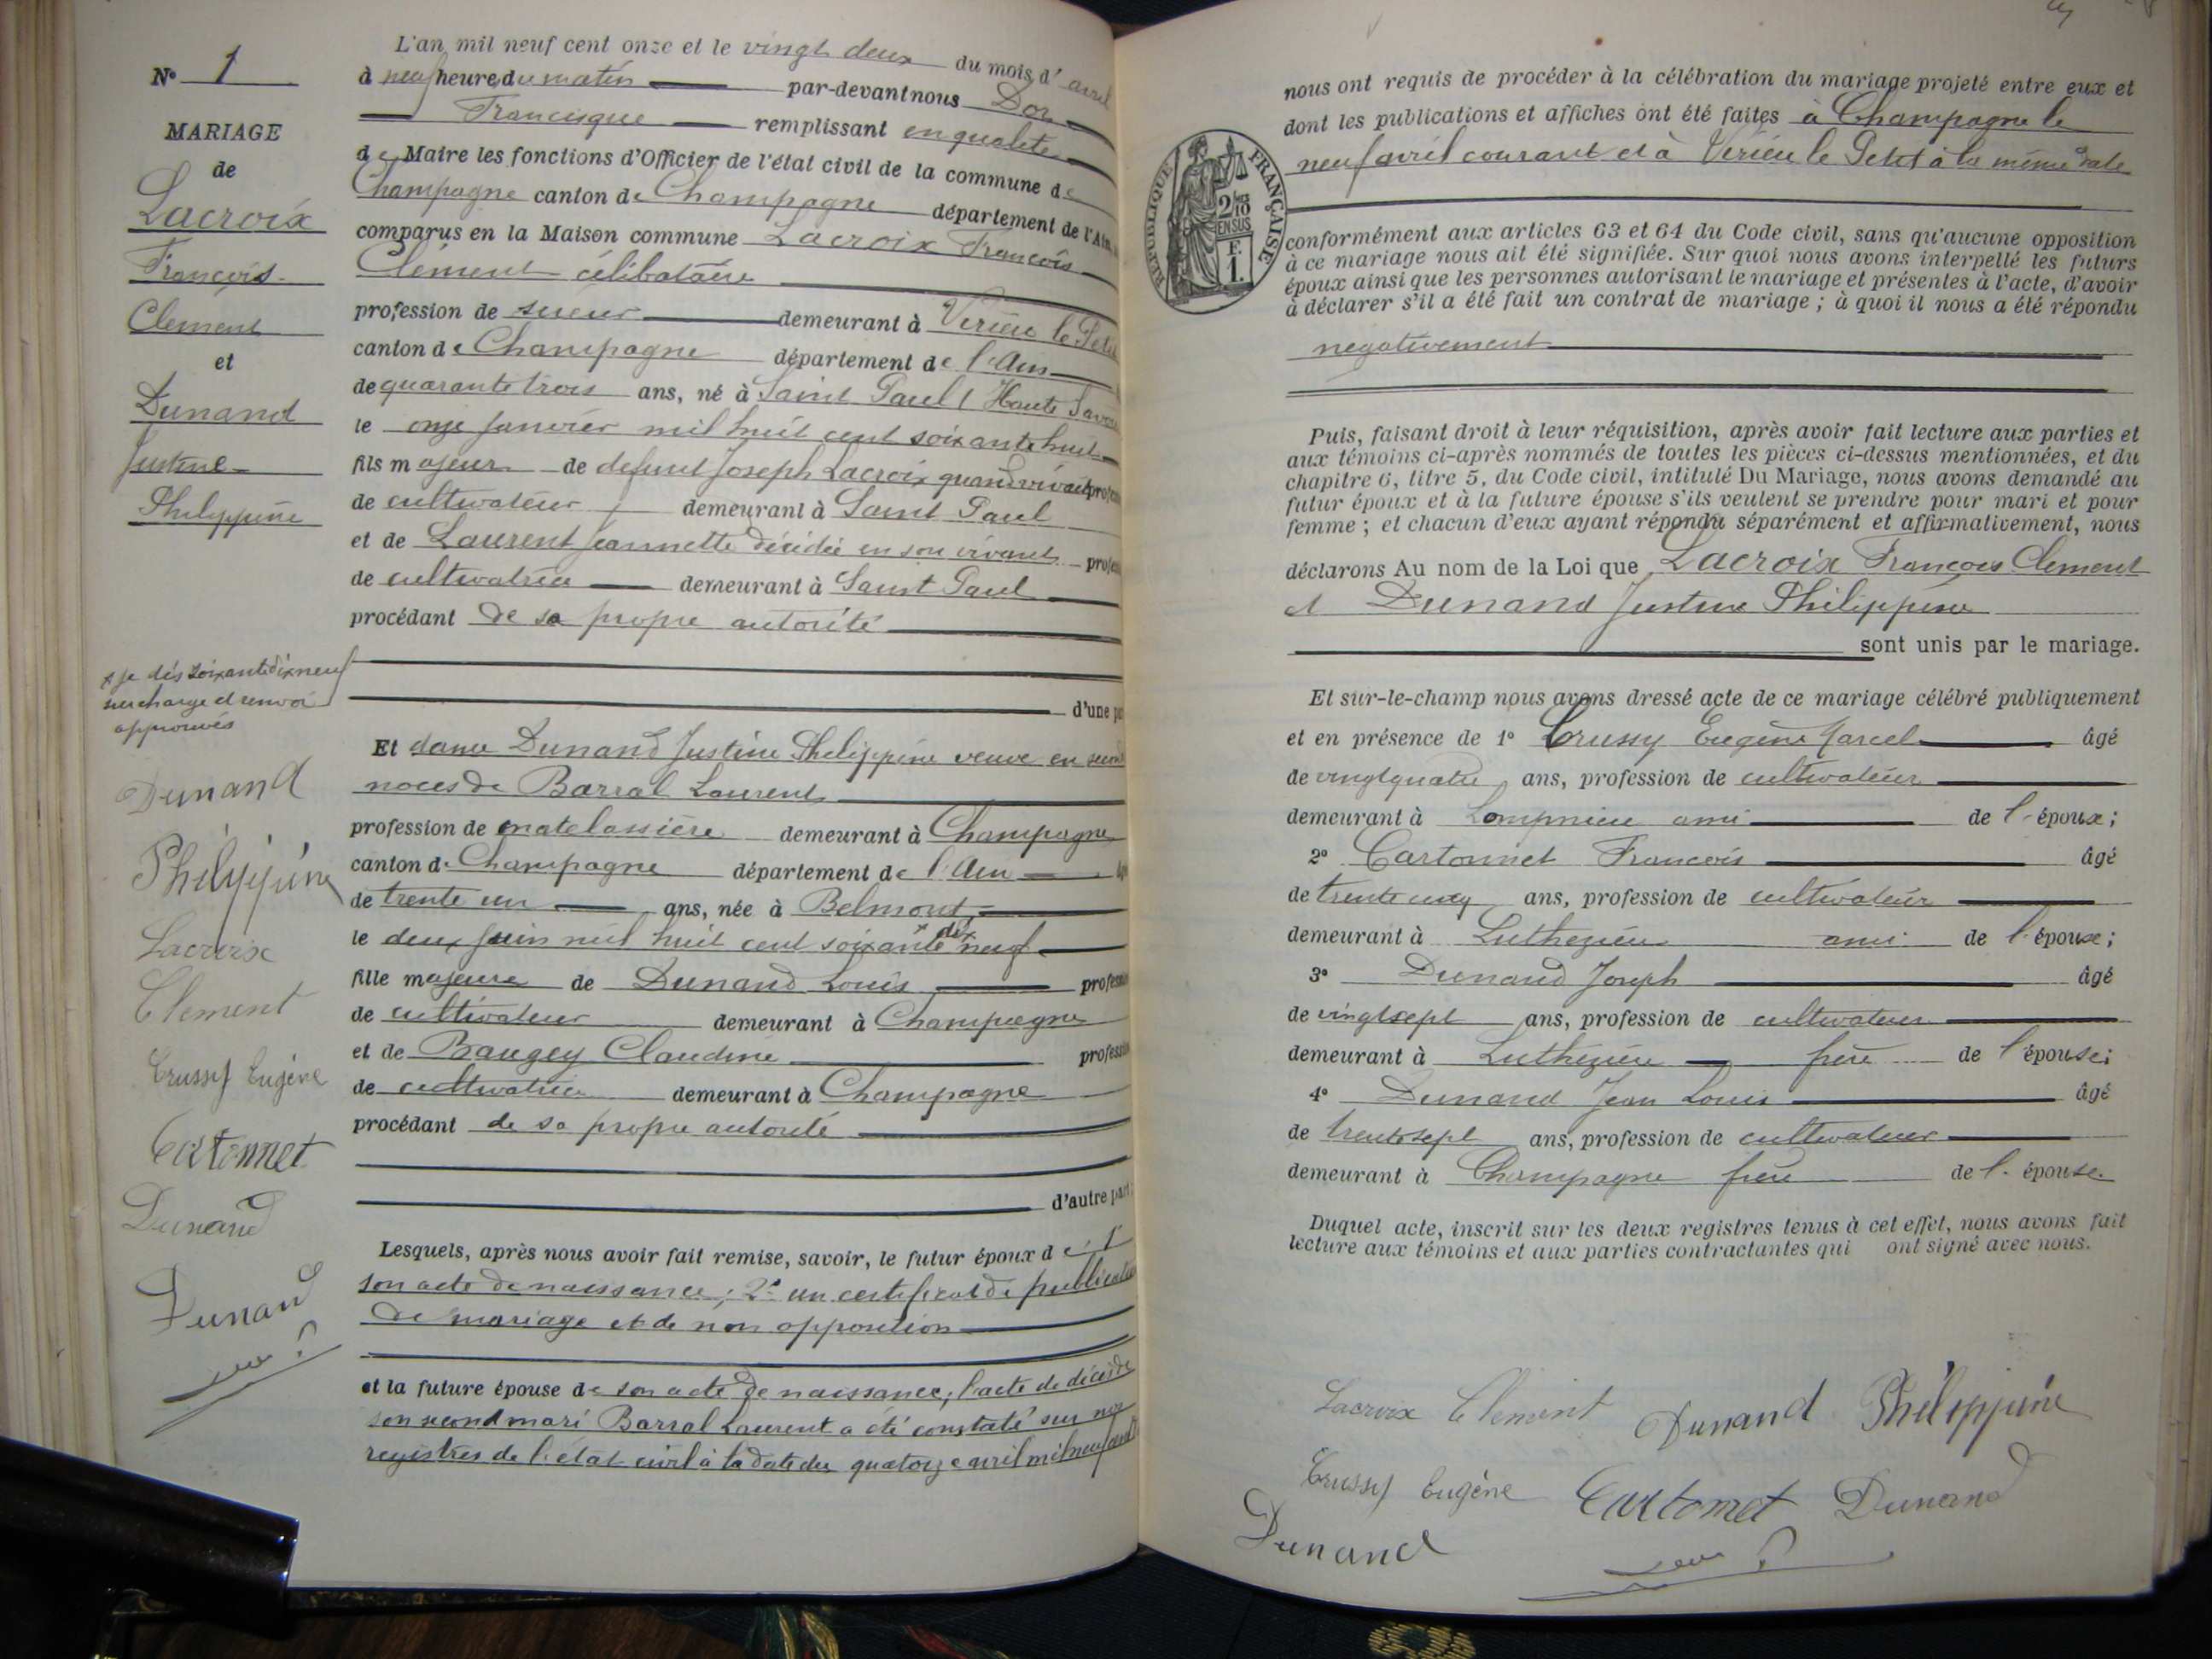 N° 1
MARIAGE
de
Lacroix
François
Clément
et
Dunand
Justine
Philippine
x je dis soixante dix neuf
surcharge et renvoi
approuvés
Dunand
Philippine
Lacroix
Clement
Crussy Eugène
Cartonnet
Dunand
Dunand
L'an mil neuf cent onze et le vingt deux du mois d'avril
à neuf heures du matin par-devant nous Dor
Francisque remplissant en qualité
de Maire les fonctions d'Officier de l'état civil de la commune de
Champagne canton de Champagne département de l'Ain
comparus en la Maison commune Lacroix François
Clément célibataire
profession de demeurant à Virieu le Petit
canton de Champagne département de l'Ain
de quarante trois ans, né à Saint Paul (Haute Savoie
le onze janvier mil huit cent soixante huit
fils majeur de defunt Joseph Lacroix quand vivait profession
de cultivateur demeurant à Saint Paul
et de Laurent Jeannette décédée en son vivant profession
de cultivatrice demeurant à Saint Paul
procédant de sa propre autorité
d'une part
Et dame Dunand Justine Philippine veuve en second
noces de Barral Laurent
profession de matelassière demeurant à Champagne
canton de Champagne département de l'Ain
de trente un ans, née à Belmont
le deux juin mil huit cent soixante x dix neuf
fille majeure de Dunand Louis profession
de cultivateur demeurant à Champagne
et de Baugey Claudine profession
de cultivatrice demeurant à Champagne
procédant de sa propre autorité
d'autre part;
Lesquels, après nous avoir fait remise, savoir, le futur époux de 1°
son acte de naissance; 2° un certificat de publication
de mariage et de non opposition
et la future épouse de son acte de naissance; l'acte de décès de
son second mari Barral Laurent a été constaté sur nos
registres de l'état civil à la date du quatorze avril mil neuf cent
nous ont requis de procéder à la célébration du mariage projeté entre eux et
dont les publications et affiches ont été faites à Champagne le
neuf avril courant et à Virieu le Petit à la même date
RÉPUBLIQUE FRANÇAISE
2/10 EN SUS
F.
1.
conformément aux articles 63 et 64 du Code civil, sans qu'aucune opposition
à ce mariage nous ait été signifiée. Sur quoi nous avons interpellé les futurs
époux ainsi que les personnes autorisant le mariage et présentes à l'acte, d'avoir
à déclarer s'il a été fait un contrat de mariage; à quoi il nous a été répondu
negativement
Puis, faisant droit à leur réquisition, après avoir fait lecture aux parties et
aux témoins ci-après nommés de toutes les pièces ci-dessus mentionnées, et du
chapitre 6, titre 5, du Code civil, intitulé Du Mariage, nous avons demandé au
futur époux et à la future épouse s'ils veulent se prendre pour mari et pour
femme; et chacun d'eux ayant répondu séparément et affirmativement, nous
déclarons Au nom de la Loi que Lacroix François Clement
et Dunand Justine Philippine
sont unis par le mariage.
Et sur-le-champ nous avons dressé acte de ce mariage célébré publiquement
et en présence de 1° Crussy Eugène Marcel âgé
de vingt quatre ans, profession de cultivateur
demeurant à Lompnieu ami de l'époux;
2° Cartonnet François âgé
de trente cinq ans, profession de cultivateur
demeurant à Luthézieu ami de l'épouse;
3° Dunand Joseph âgé
de vingt sept ans, profession de cultivateur
demeurant à Luthézieu frère de l'épouse;
4° Dunand Jean Louis âgé
de trente sept ans, profession de cultivateur
demeurant à Champagne frère de l'épouse
Duquel acte, inscrit sur les deux registres tenus à cet effet, nous avons fait
lecture aux témoins et aux parties contractantes qui ont signé avec nous.
Lacroix Clement Dunand Philippine
Crussy Eugène Cartonnet Dunand
Dunand